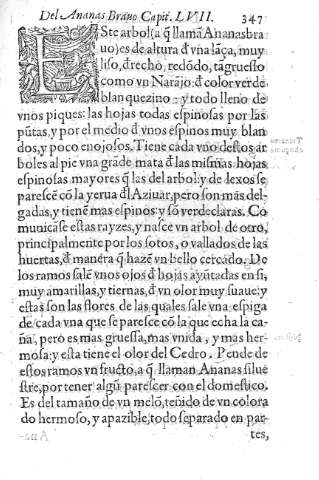 Del Ananas Brauo Capit. LVII. 347
ESte arbol (a q̃ llamã Ananas bra
uo) es de altura d̃ vna lãça, muy
liso, drecho, redõdo, tã gruesso
como vn Narãjo: d̃ color verde
blanquezino: y todo lleno de
vnos piques: las hojas todas espinosas por las
pũtas, y por el medio d̃ vnos espinos muy blan
dos, y poco enojosos. Tiene cada vno destos ar
boles al pie vna grãde mata d̃ las mismas hojas
espinosas mayores q̃ las del arbol: y de lexos se
paresce cõ la yerua d̃l Aziuar, pero son mas del-
gadas, y tienẽ mas espinos y sõ verdeclaras. Co
municãse estas rayzes, y nasce vn arbol de otro,
principalmente por los sotos, o vallados de las
huertas, d̃ manera q̃ hazẽ vn bello cercado. De
los ramos salẽ vnos ojos d̃ hojas ayũtadas en si,
muy amarillas, y tiernas, d̃ vn olor muy suaue: y
estas son las flores de las quales sale vna espiga
de cada vna que se paresce cõ la que echa la ca-
ña, pero es mas gruessa, mas vnida, y mas her-
mosa: y esta tiene el olor del Cedro. Pende de
estos ramos vn fructo, a q̃ llaman Ananas silue
stre, por tener algũ parescer con el domestico.
Es del tamaño de vn melõ, teñido de vn colora
do hermoso, y apazible, todo separado en par-
tes,